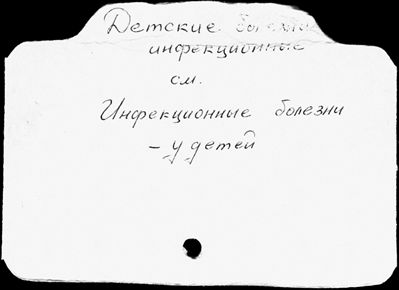 Детские болезни
инфекционные
см.
Инфекционные болезни
- у детей